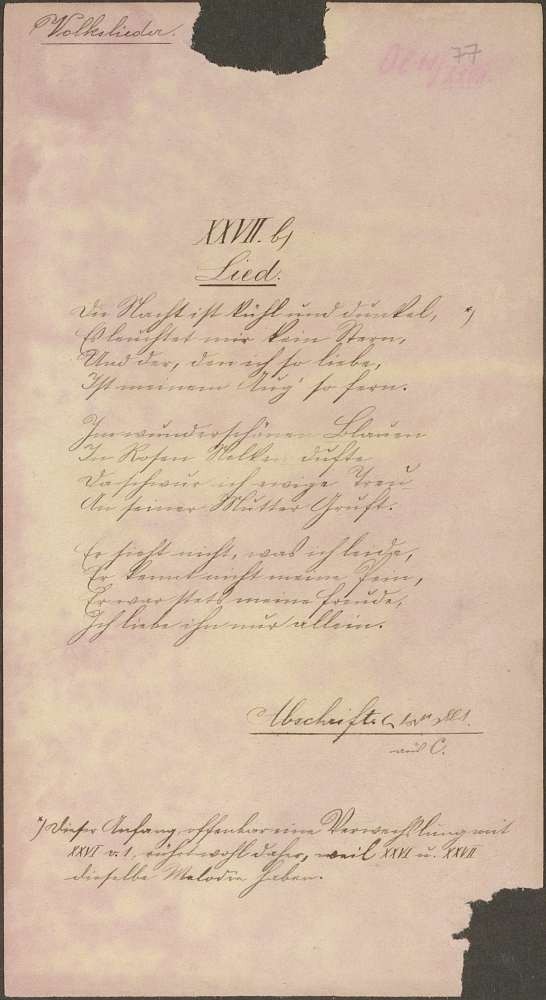 Volkslieder.
77
XXVII. b)
Lied.
Die Nacht ist kühl und dunkel, *)
Es leuchtet mir kein Stern,
Und der, den ich so liebe,
Ist meinem Aug' so fern.
Im wunderschönen Blauen
In Rosen Nelken dufte
Da schwur ich ewige Treu
An seiner Mutter Gruft.
Er sieht nicht, was ich leide,
Er kennt nicht meine Pein,
Er war stets meine Freude,
Ich liebe ihn nur allein.
Abschrift
aus C.
*) Dieser Anfang, offenbar eine Verwechslung mit
XXVI v. 1, rührt wohl daher, weil XXVI u. XXVII
dieselbe Melodie haben.